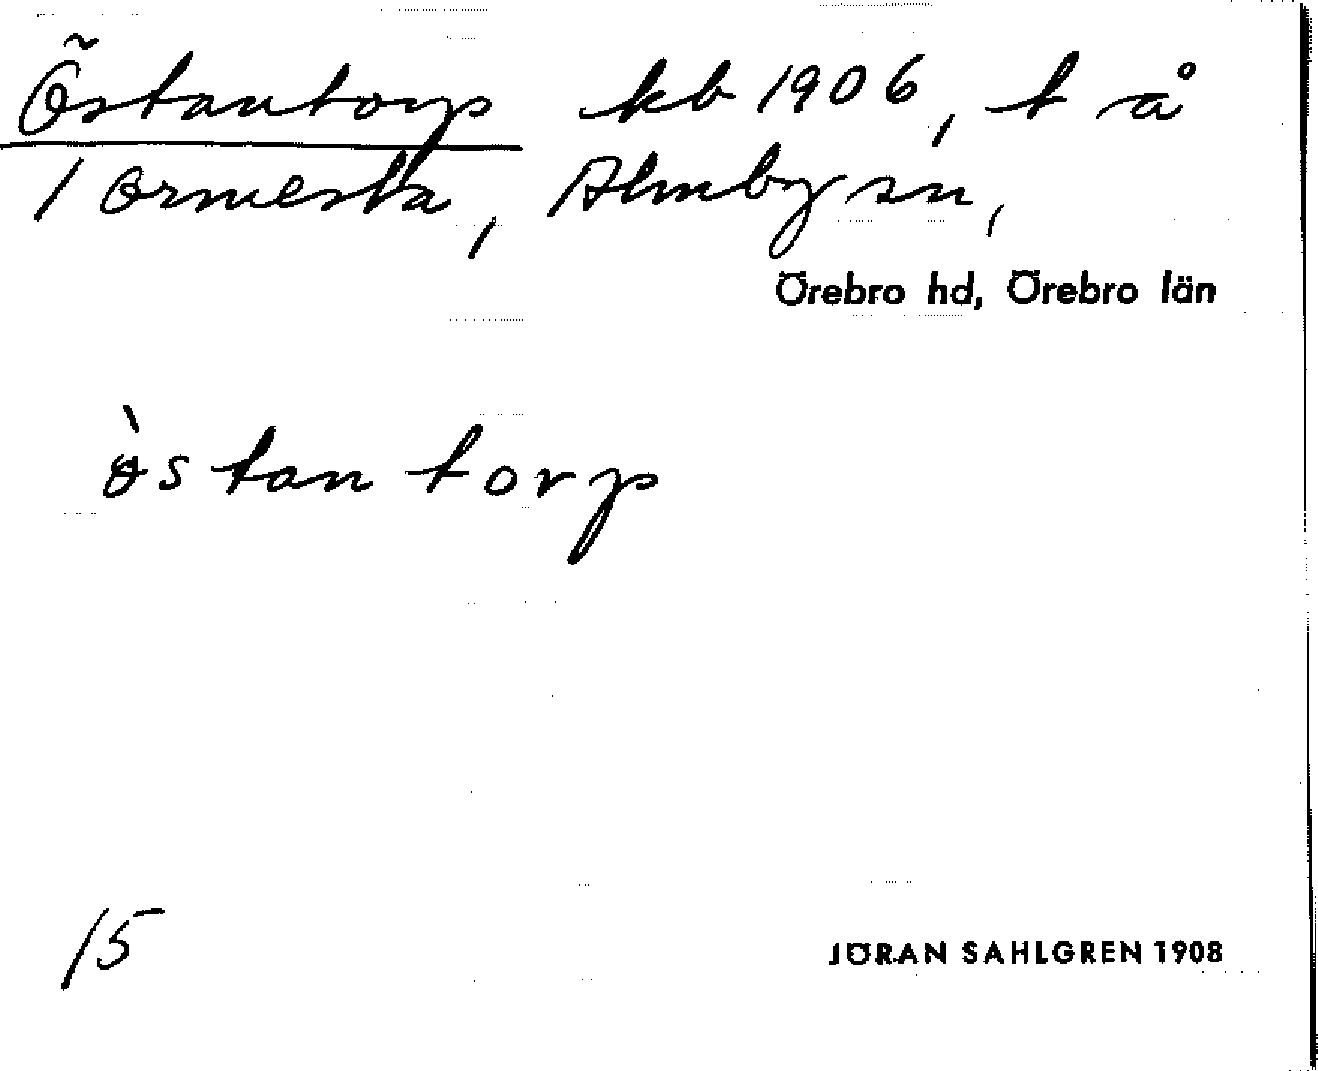 Östantorp kb 1906, t å
1 Ormesta, Almby sn,
Örebro hd, Örebro län
ö̀stantorp
15
JÖRAN SAHLGREN 1908